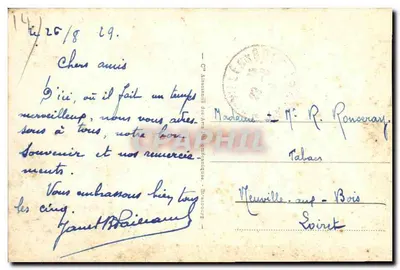 le 26/8 29.
Chers amis
D'ici, où il fait un temps
merveilleux, nous vous adres-
sons à tous, notre bon
souvenir et nos remercie-
ments.
Vous embrassons bien tous
les cinq.
Madame & Mr R. Ronceray
Tabacs
Neuville-aux-Bois
Loiret
CPAPHIL